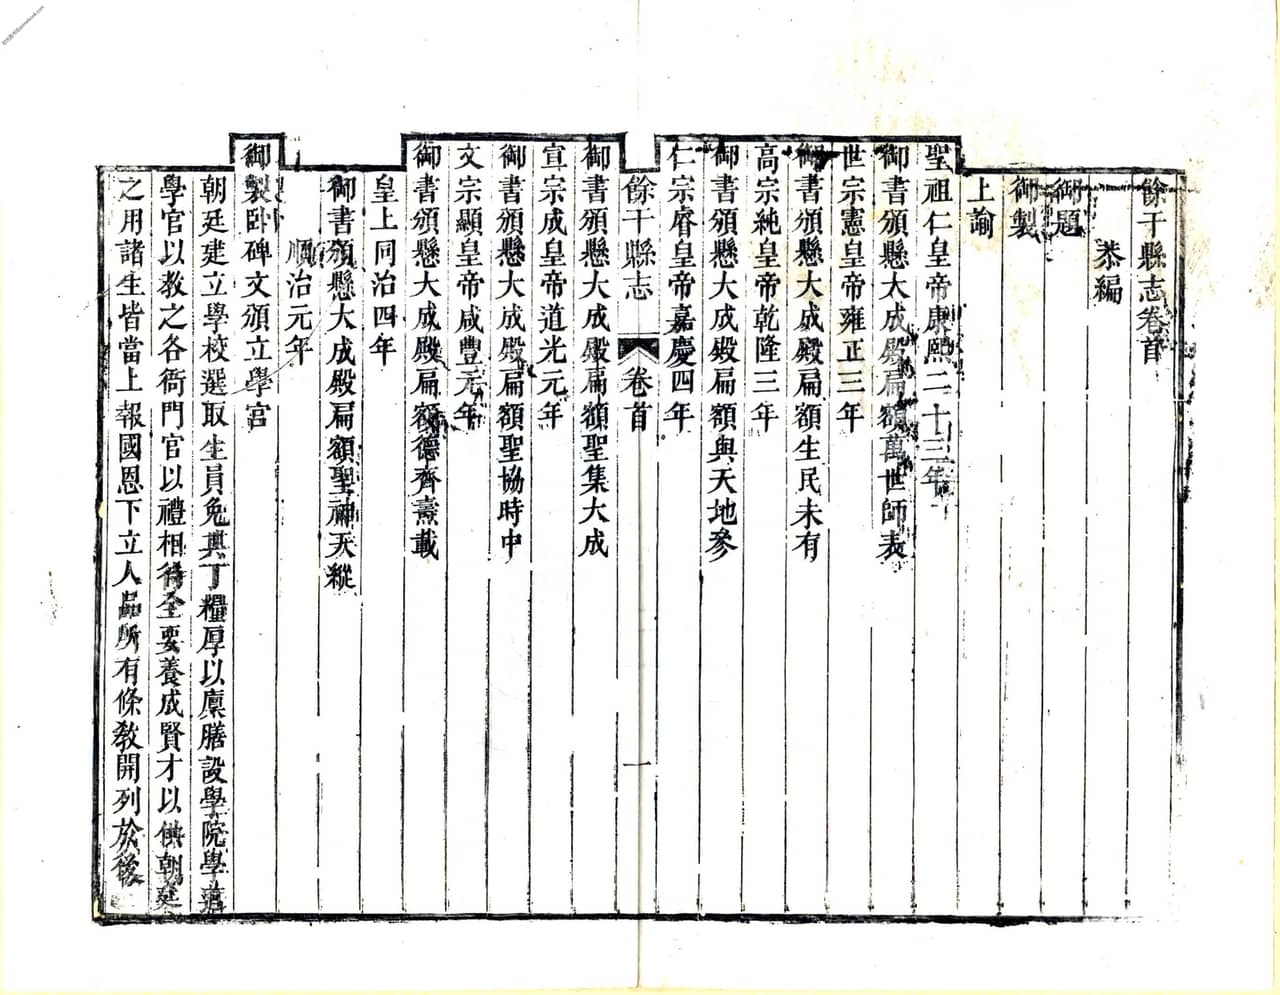 餘干縣志卷首
恭編
御題
御製
上諭
聖祖仁皇帝康熙二十三年
御書頒懸大成殿扁額萬世師表
世宗憲皇帝雍正三年
御書頒懸大成殿扁額生民未有
高宗純皇帝乾隆三年
御書頒懸大成殿扁額與天地參
仁宗睿皇帝嘉慶四年
餘干縣志 卷首 一
御書頒懸大成殿扁額聖集大成
宣宗成皇帝道光元年
御書頒懸大成殿扁額聖協時中
文宗顯皇帝咸豐元年
御書頒懸大成殿扁額德齊燾載
皇上同治四年
御書頒懸大成殿扁額聖神天縱
順治元年
御製臥碑文頒立學宮
朝廷建立學校選取生員免其丁糧厚以廩膳設學院學道
學官以教之各衙門官以禮相待全要養成賢才以供朝廷
之用諸生皆當上報國恩下立人品所有條教開列於後